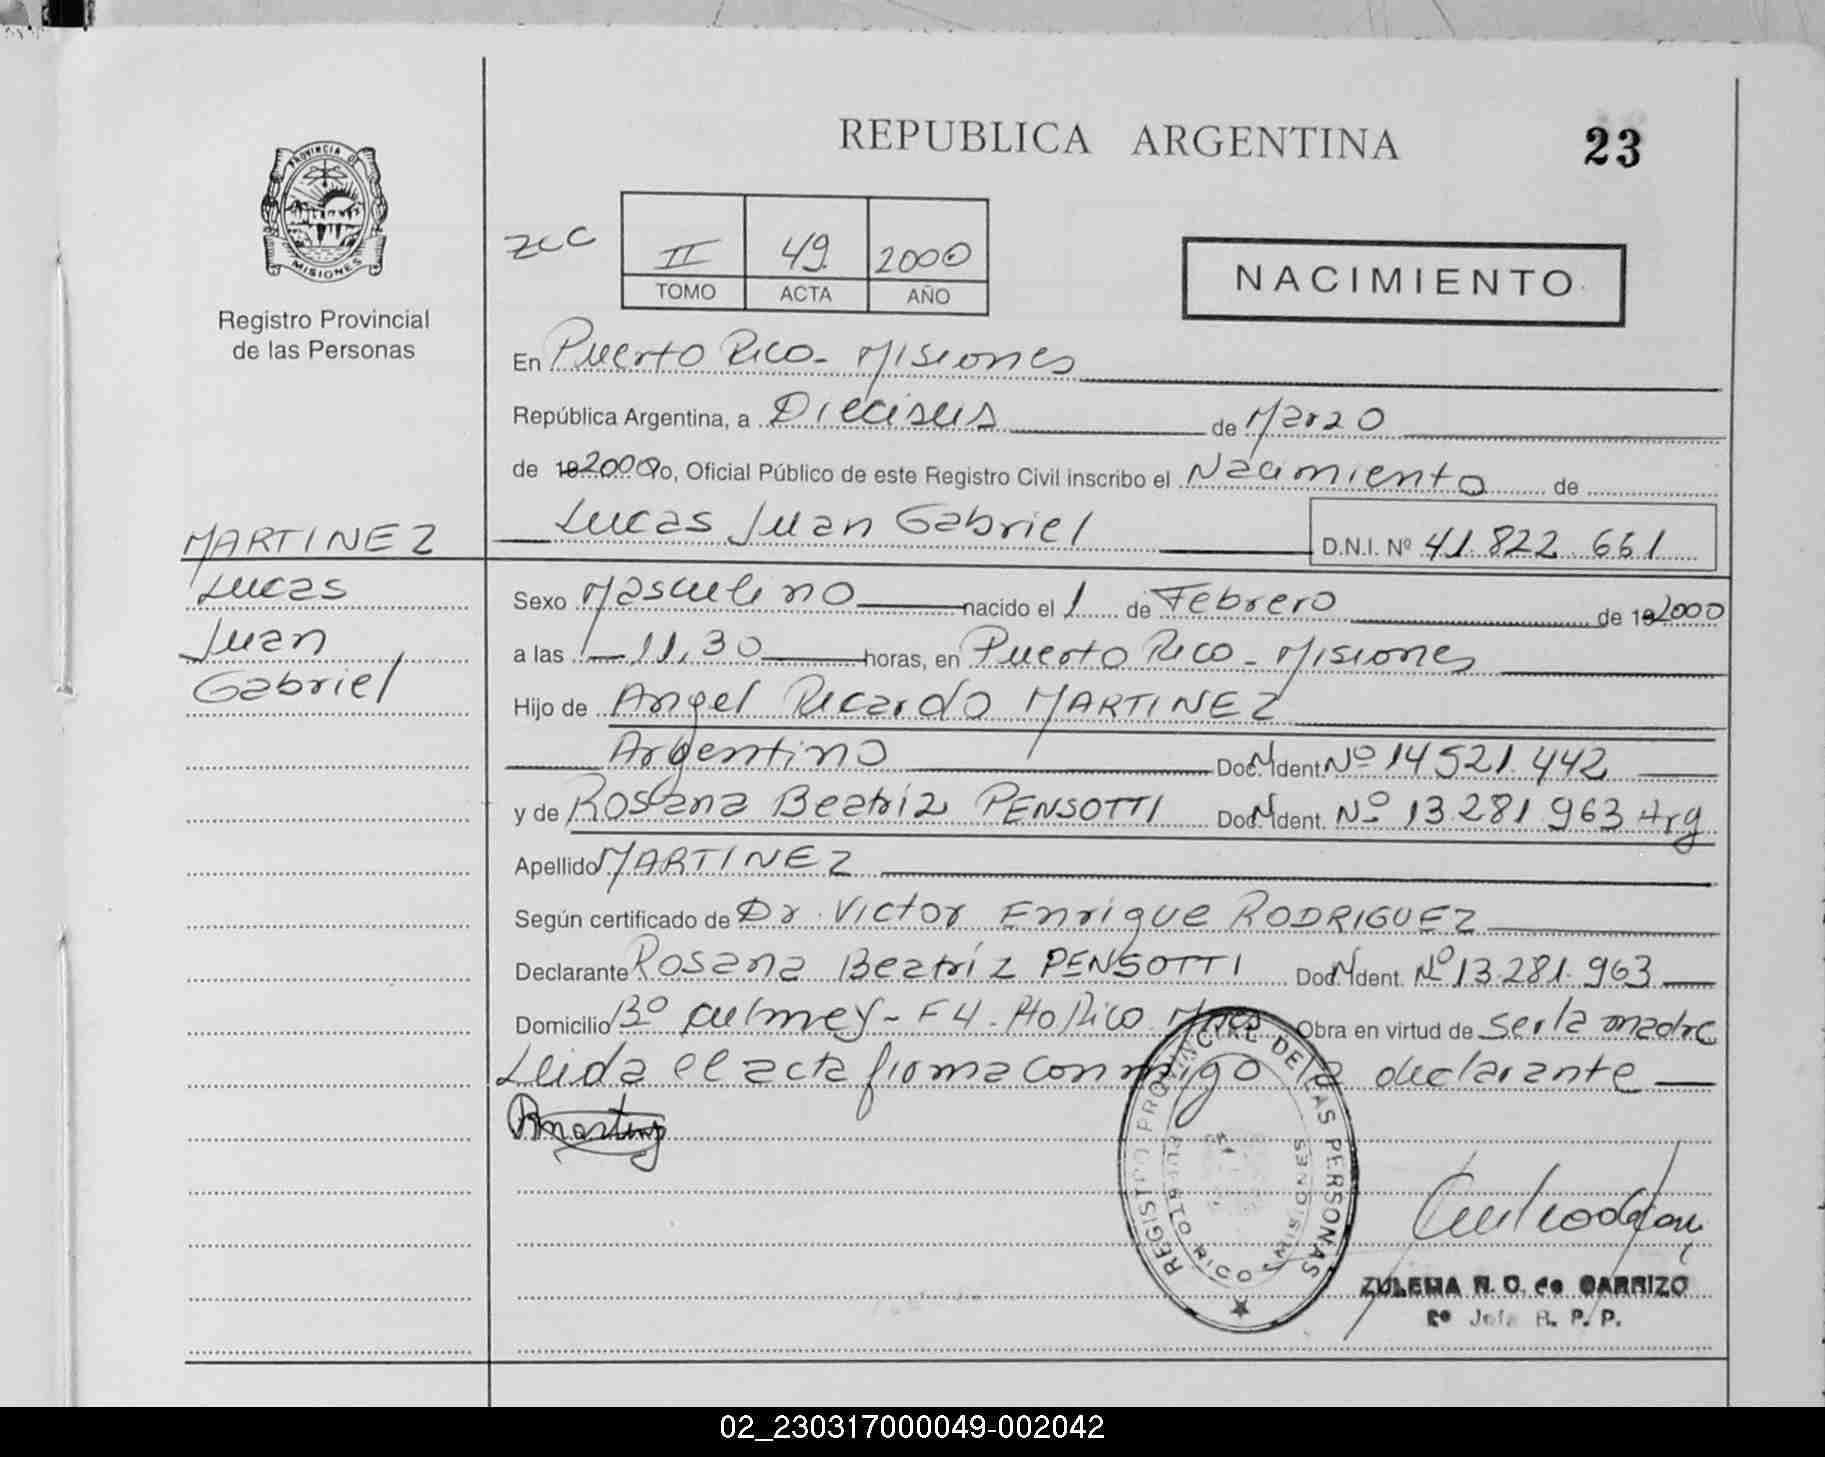 REPUBLICA ARGENTINA
23
PROVINCIA DE MISIONES
Registro Provincial
de las Personas
II 49 2000
TOMO ACTA AÑO
NACIMIENTO
En Puerto Rico - Misiones
República Argentina, a Dieciseis de Marzo
de 19 2000 Yo, Oficial Público de este Registro Civil inscribo el Nacimiento de
Lucas Juan Gabriel
D.N.I. Nº 41.822.661
MARTINEZ
Lucas
Juan
Gabriel
Sexo Masculino nacido el 1 de Febrero de 19 2000
a las 11,30 horas, en Puerto Rico - Misiones
Hijo de Angel Ricardo MARTINEZ
Argentino Doc. N. Ident. Nº 14.521.442
y de Rosana Beatriz PENSOTTI Doc. N. Ident. Nº 13.281.963 Arg
Apellido MARTINEZ
Según certificado de Dr. Victor Enrique RODRIGUEZ
Declarante Rosana Beatriz PENSOTTI Doc. N. Ident. Nº 13.281.963
Domicilio Bº Culmey - F 4 - Pto Rico Mnes Obra en virtud de ser la madre
Leida el acta firma conmigo la declarante
REGISTRO PROVINCIAL DE LAS PERSONAS
PUERTO RICO MISIONES
ZULEMA R. O. de CARRIZO
2º Jefe R. P. P.
02_230317000049-002042